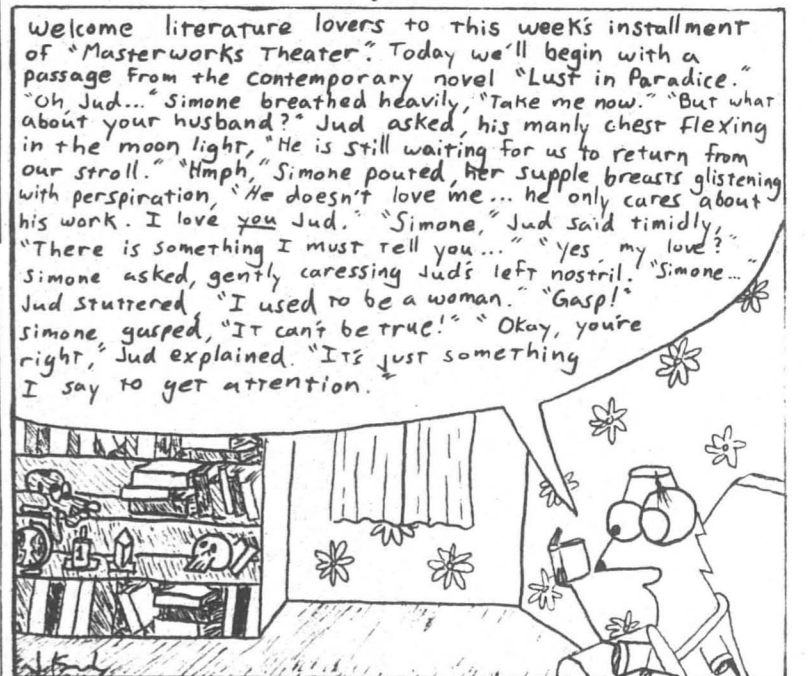 Welcome literature lovers to this week's installment
of "Masterworks Theater". Today we'll begin with a
passage from the contemporary novel "Lust in Paradice."
"Oh, Jud..." Simone breathed heavily, "Take me now." "But what
about your husband?" Jud asked, his manly chest flexing
in the moon light, "He is still waiting for us to return from
our stroll." "Hmph," Simone pouted, her supple breasts glistening
with perspiration, "He doesn't love me... he only cares about
his work. I love you Jud." "Simone," Jud said timidly,
"There is something I must tell you..." "Yes, my love?"
Simone asked, gently caressing Jud's left nostril. "Simone..."
Jud stuttered, "I used to be a woman." "Gasp!"
Simone gasped, "It can't be true!" "Okay, you're
right," Jud explained. "It's just something
I say to get attention."
1